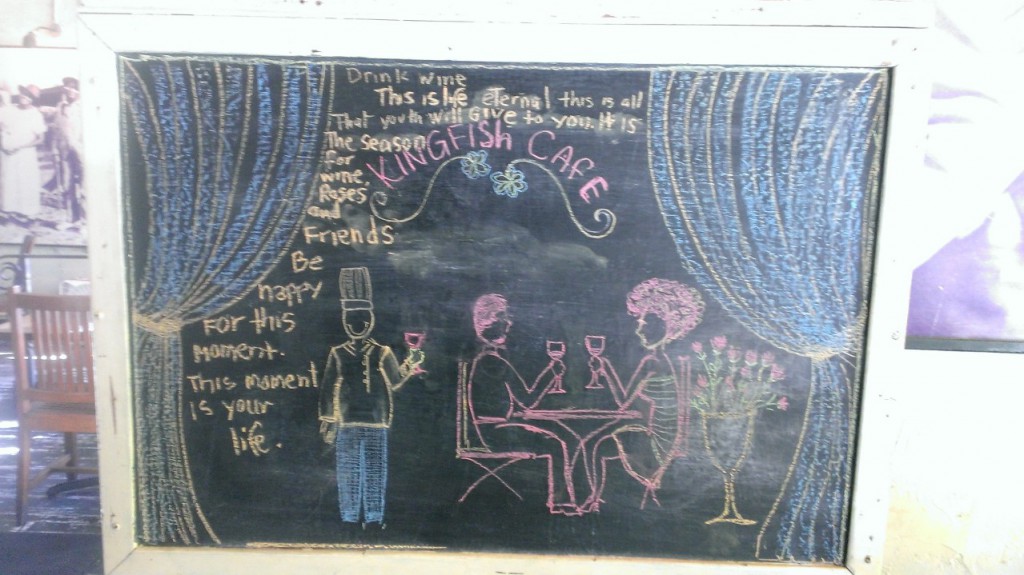 Drink wine
This is life eternal this is all
That youth will GIVE to you. It is
The season
for
wine,
Roses
and
Friends
Be
happy
For this
moment.
This moment
is your
life.
KINGFISH CAFE